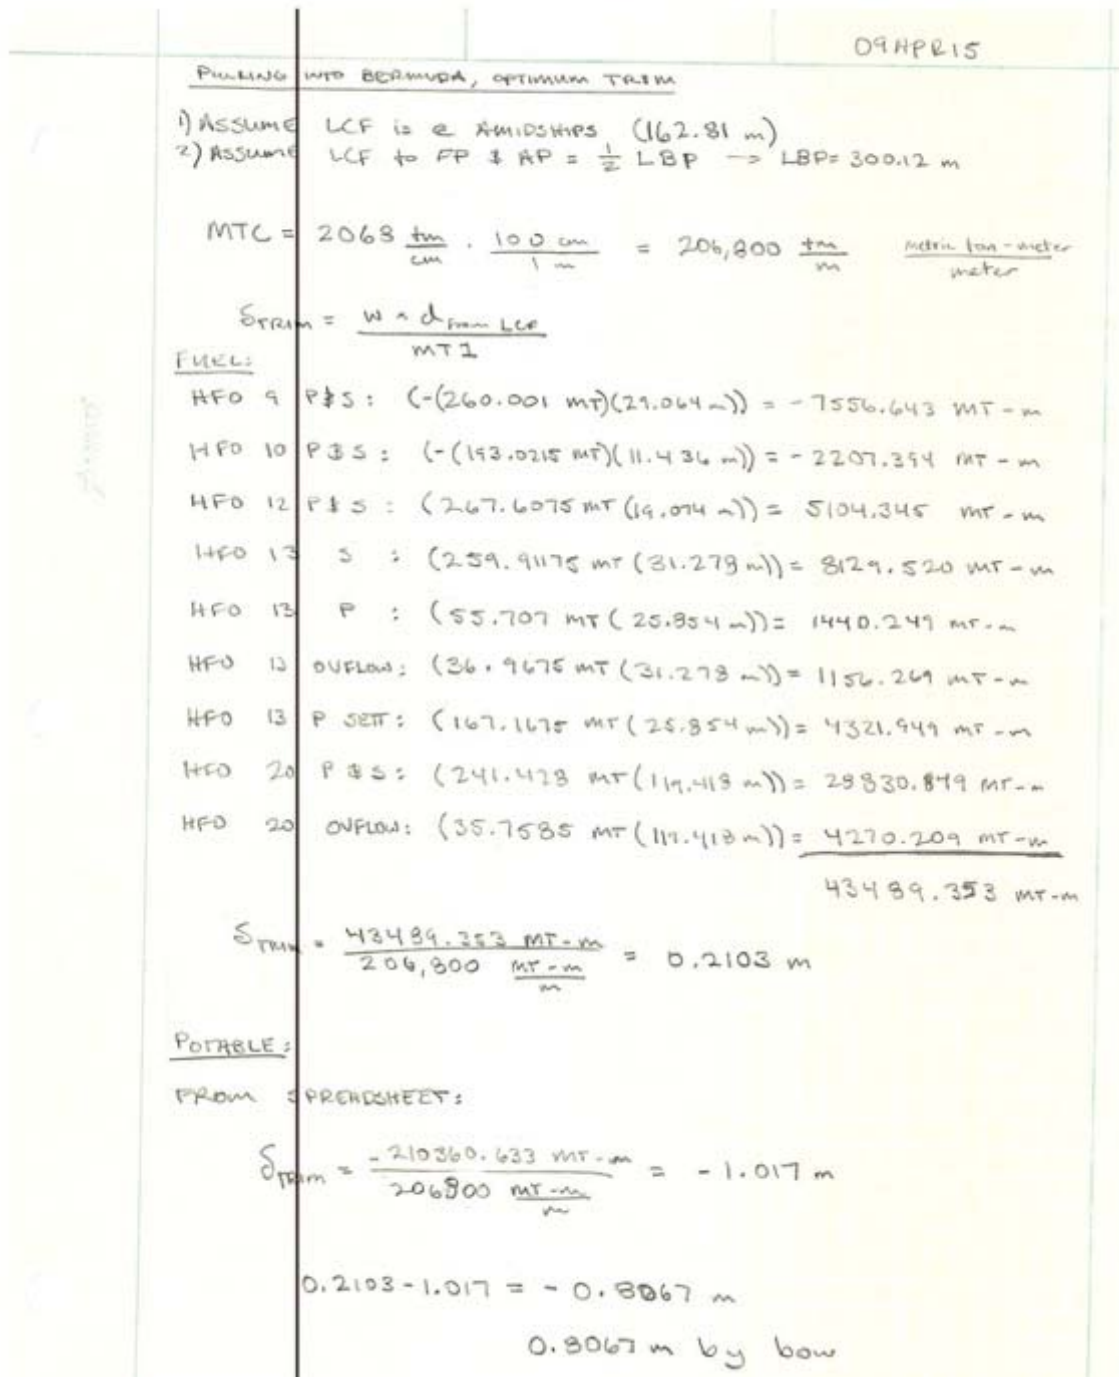 09APR15
PULLING INTO BERMUDA, OPTIMUM TRIM
1) ASSUME LCF is @ AMIDSHIPS (162.81 m)
2) ASSUME LCF to FP & AP = 1/2 LBP -> LBP= 300.12 m
MTC = 2068 tm/cm · 100 cm/1 m = 206,800 tm/m metric ton-meter/meter
δTRIM = w × d from LCF / MT1
FUEL:
HFO 9 P&S: (-(260.001 MT)(29.064 m)) = -7556.643 MT-m
HFO 10 P&S: (-(193.0215 MT)(11.436 m)) = -2207.394 MT-m
HFO 12 P&S: (267.6075 MT (19.074 m)) = 5104.345 MT-m
HFO 13 S : (259.91175 MT (31.278 m)) = 8129.520 MT-m
HFO 13 P : (55.707 MT (25.854 m)) = 1440.249 MT-m
HFO 13 OVFLOW: (36.9675 MT (31.278 m)) = 1156.269 MT-m
HFO 13 P SETT: (167.1675 MT (25.854 m)) = 4321.949 MT-m
HFO 20 P&S: (241.428 MT (119.418 m)) = 28830.849 MT-m
HFO 20 OVFLOW: (35.7585 MT (119.418 m)) = 4270.209 MT-m
43489.353 MT-m
δTRIM = 43489.353 MT-m / 206,800 MT-m/m = 0.2103 m
POTABLE:
FROM SPREADSHEET:
δTRIM = -210360.633 MT-m / 206800 MT-m/m = -1.017 m
0.2103 - 1.017 = -0.8067 m
0.8067 m by bow